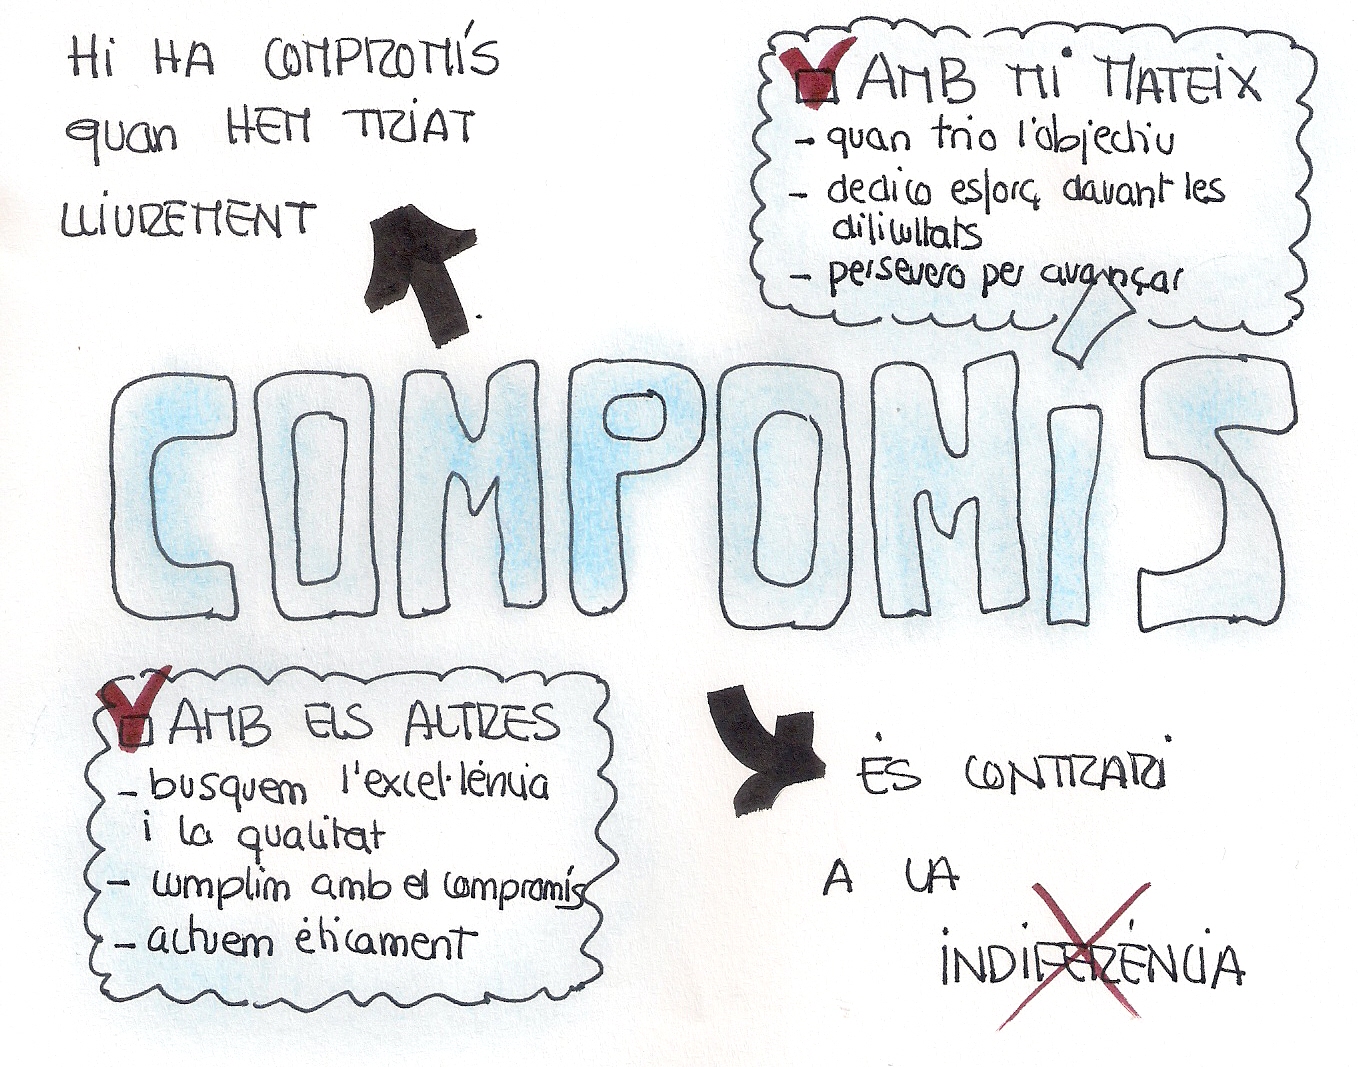 Hi HA COMPROMÍS
quan HEM TRIAT
LLIUREMENT
AMB MI MATEIX
- quan trio l'objectiu
- dedico esforç davant les
dificultats
- persevero per avançar
COMPOMÍS
AMB ELS ALTRES
- busquem l'excel·léncia
i la qualitat
- cumplim amb el compromís
- actuem èticament
ÉS CONTRARI
A LA
INDIFERÉNCIA